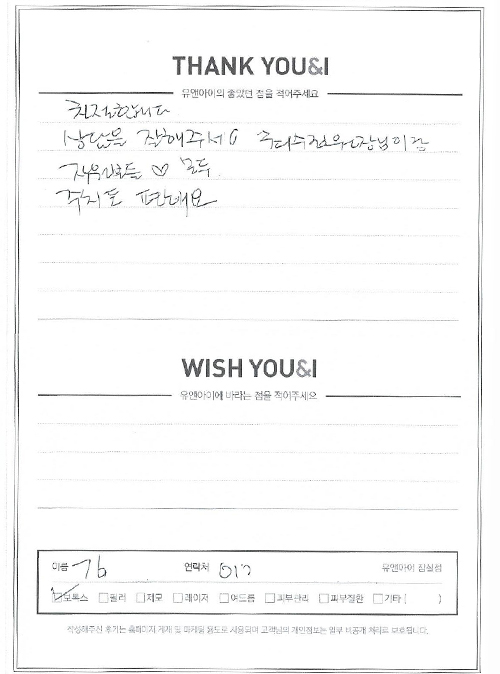 THANK YOU&I
유앤아이의 좋았던 점을 적어주세요
친절합니다
상담을 잘해주세요
직원분들 ♡ 모두
주차도 편해요
WISH YOU&I
유앤아이에 바라는 점을 적어주세요
이름 연락처 유앤아이 잠실점
보톡스 필러 제모 레이저 여드름 피부관리 피부질환 기타 ( )
작성해주신 후기는 홈페이지 게재 및 마케팅 용도로 사용되며 고객님의 개인정보는 일부 비공개 처리로 보호됩니다.